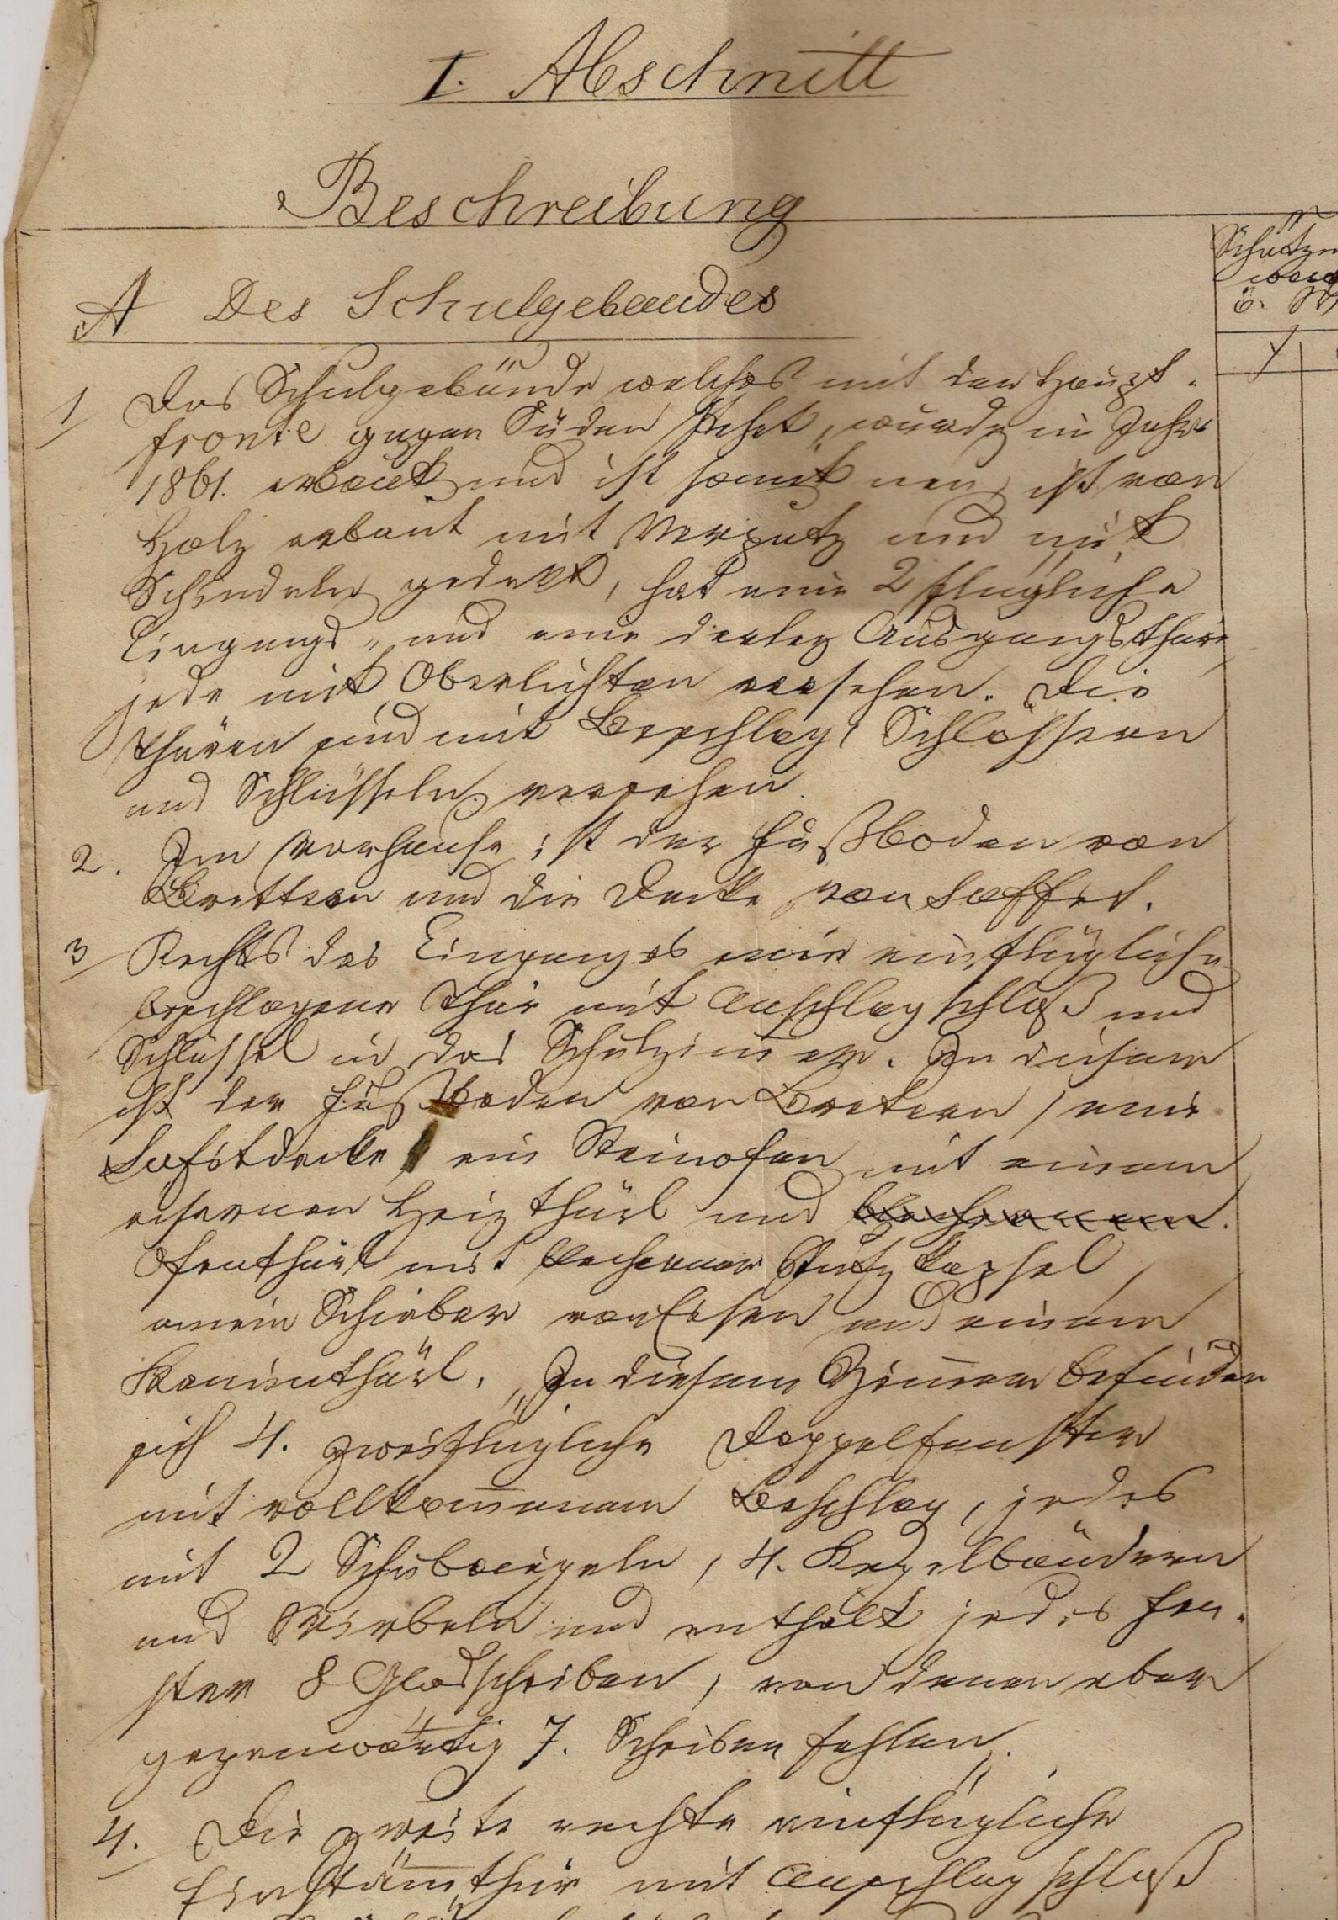 I. Abschnitt
Beschreibung
Schätzungs
werth
ö. W
A Des Schulgebaeudes
1 Das Schulgebäude welches mit der Haupt-
fronte gegen Süden steht, wurde im Jahre
1861. erbaut und ist somit neu, ist von
Holz erbaut mit Verputz und mit
Schindeln gedekt, hat eine 2 flügliche
Eingangs- und eine derley Ausgangsthüre
jede mit Oberlichten versehen. Die
Thüren sind mit Beschlag, Schlössern
und Schlüsseln versehen.
2. Im Vorhause ist der Fußboden von
Brettern und die Decke von Saffet.
3 Rechts des Einganges eine einflügliche
beschlagene Thür mit Anschlagschloß und
Schlüssel in das Schulzimmer. In diesem
ist der Fußboden von Bretern, eine
Safitdecke, ein Steinofen mit einem
eisernen Heizthürl und
Ofenthürl mit blecherner Stutzkapsel
einem Schieber von Eisen und einem
Kaminthürl. In diesem Zimmer befinden
sich 4. zweiflügliche Doppelfenster
mit vollkommenem Beschlag, jedes
mit 2 Schubriegeln, 4. Kegelbändern
und Wirbeln und enthält jedes Fen-
ster 8 Glasscheiben, von denen aber
gegenwärtig 7. Scheiben fehlen.
4. Die zweite rechte einflügliche
thür mit Anschlagschloß